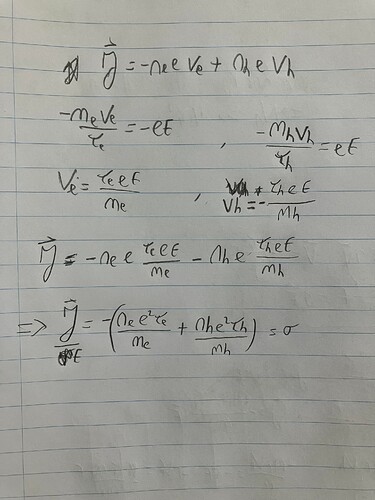 J⃗ = -n_e e V_e + n_h e V_h
-m_e V_e / τ_e = -eE , -m_h V_h / τ_h = eE
V_e = τ_e e E / m_e , V_h = - τ_h e E / m_h
J⃗ = - n_e e τ_e e E / m_e - n_h e τ_h e E / m_h
=> J⃗ / E = -( n_e e² τ_e / m_e + n_h e² τ_h / m_h ) = σ